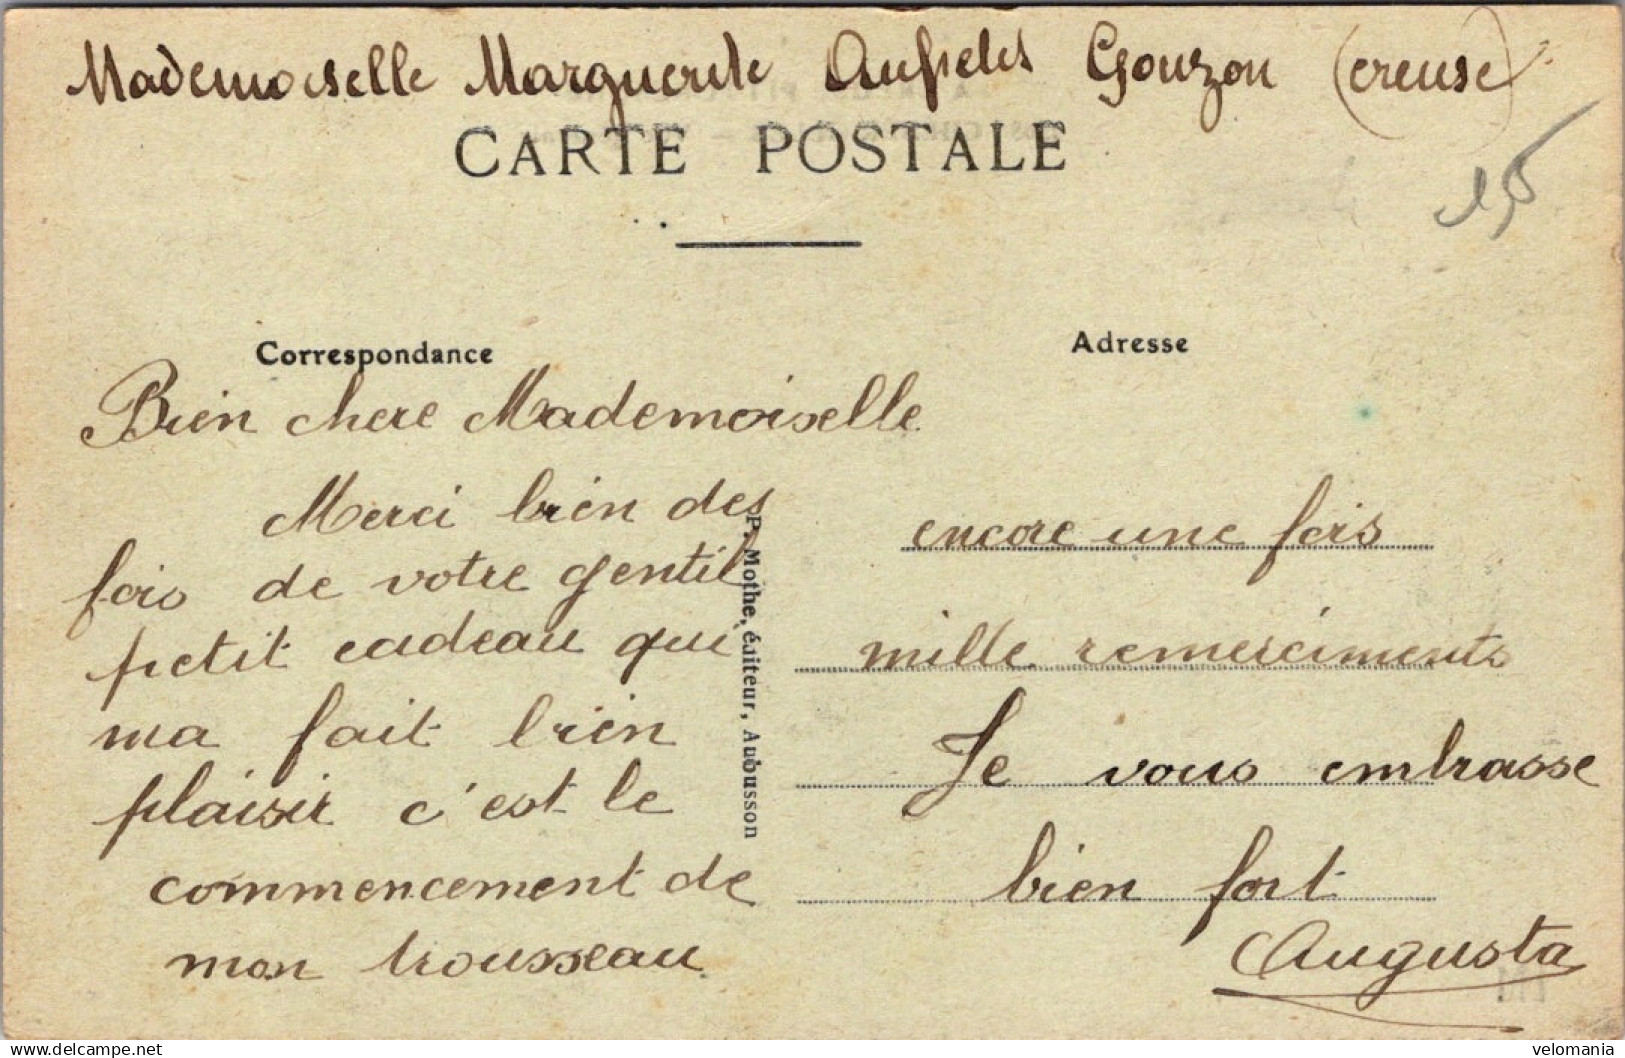 Mademoiselle Marguerite Gouzon (Creuse)
CARTE POSTALE
1,5
Correspondance
Adresse
Bien chere Mademoiselle
Merci bien des
fois de votre gentil
petit cadeau qui
ma fait bien
plaisir c'est le
commencement de
mon trousseau
P. Mothe, éditeur, Aubusson
encore une fois
mille remerciments
Je vous embrasse
bien fort
Augusta
delcampe.net
velomania